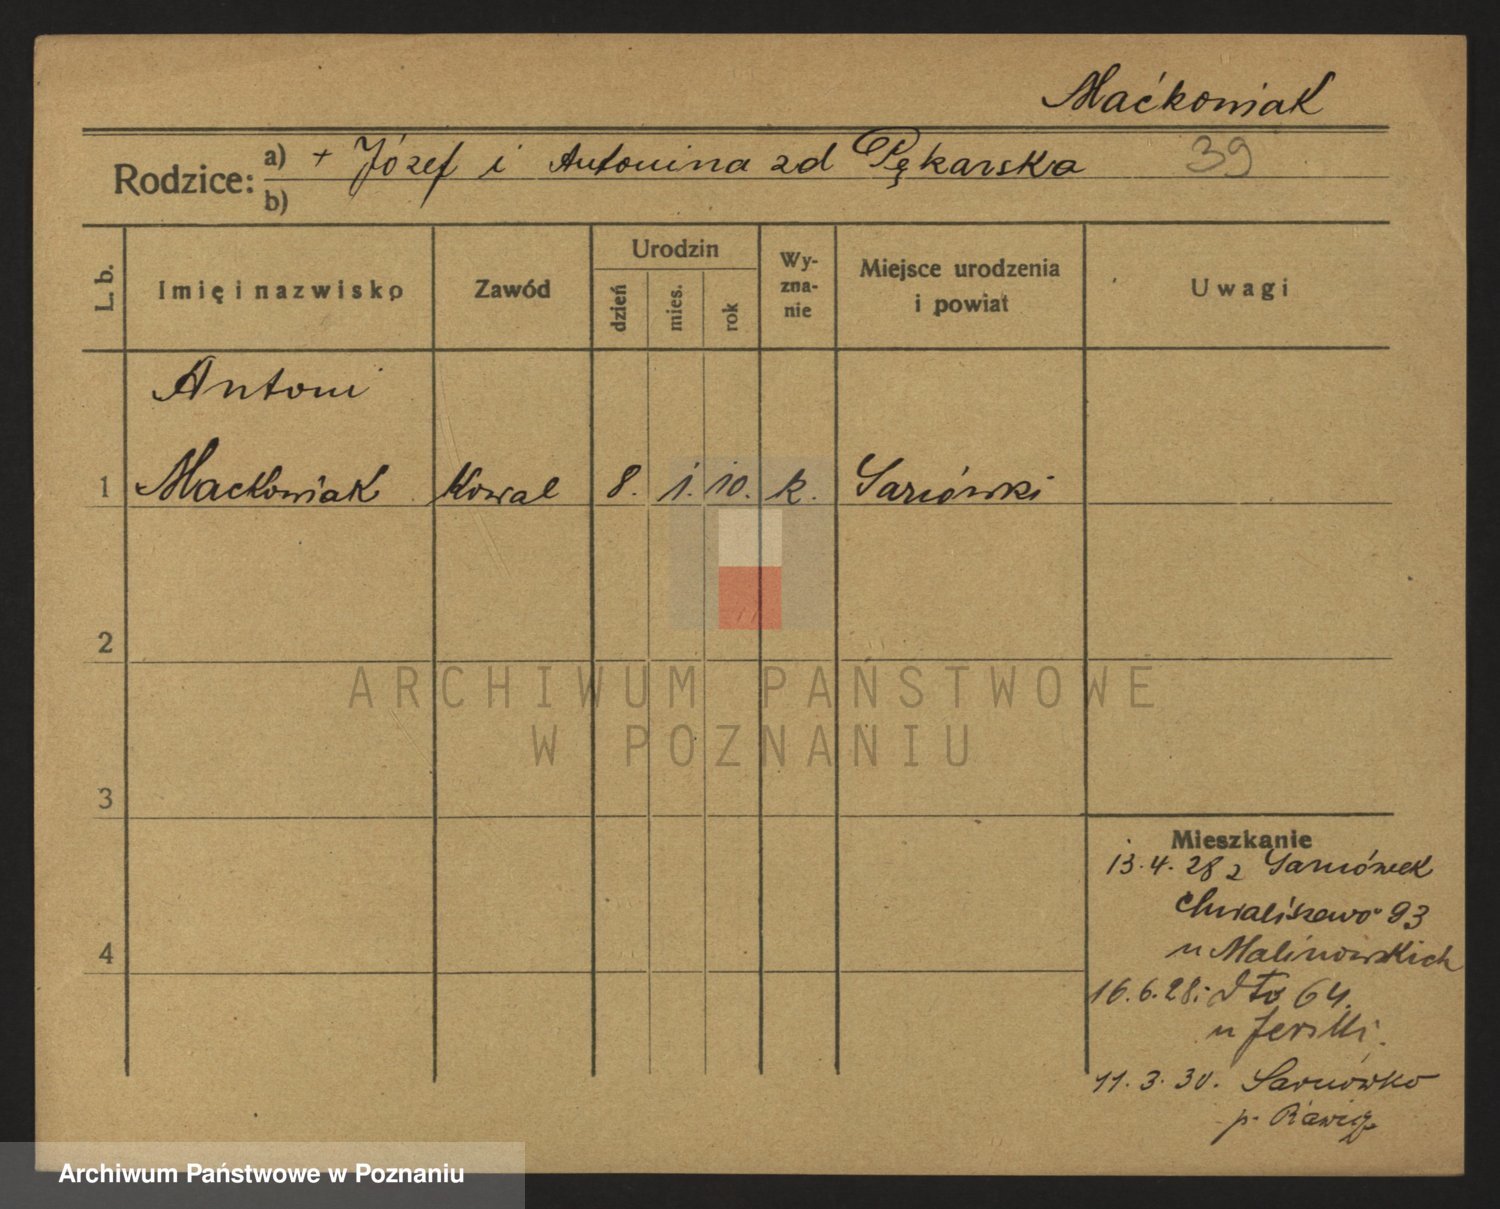 Maćkowiak
Rodzice: a) + Józef i Antonina zd Pękarska 39
b)
L. b. Imię i nazwisko Zawód Urodzin dzień mies. rok Wy-zna-nie Miejsce urodzenia i powiat Uwagi
Antoni
1 Maćkowiak Kowal 8. 1. 10. k. Sarnówki
2
ARCHIWUM PAŃSTWOWE
W POZNANIU
3
Mieszkanie
13.4.28 z Sarnówek
Chwaliszewo 93
4
u Malinowskich
16.6.28: dto 64.
u
11.3.30. Sarnówko
p. Rawicz
Archiwum Państwowe w Poznaniu